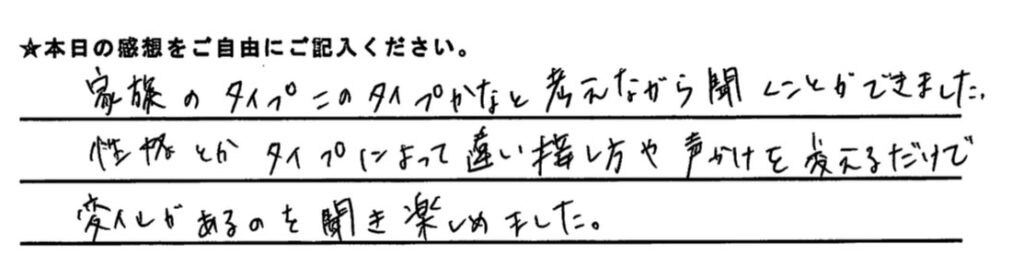 ☆本日の感想をご自由にご記入ください。
家族のタイプこのタイプかなと考えながら聞くことができました。
性格とかタイプによって違い接し方や声かけを変えるだけで
変化があるのを聞き楽しめました。